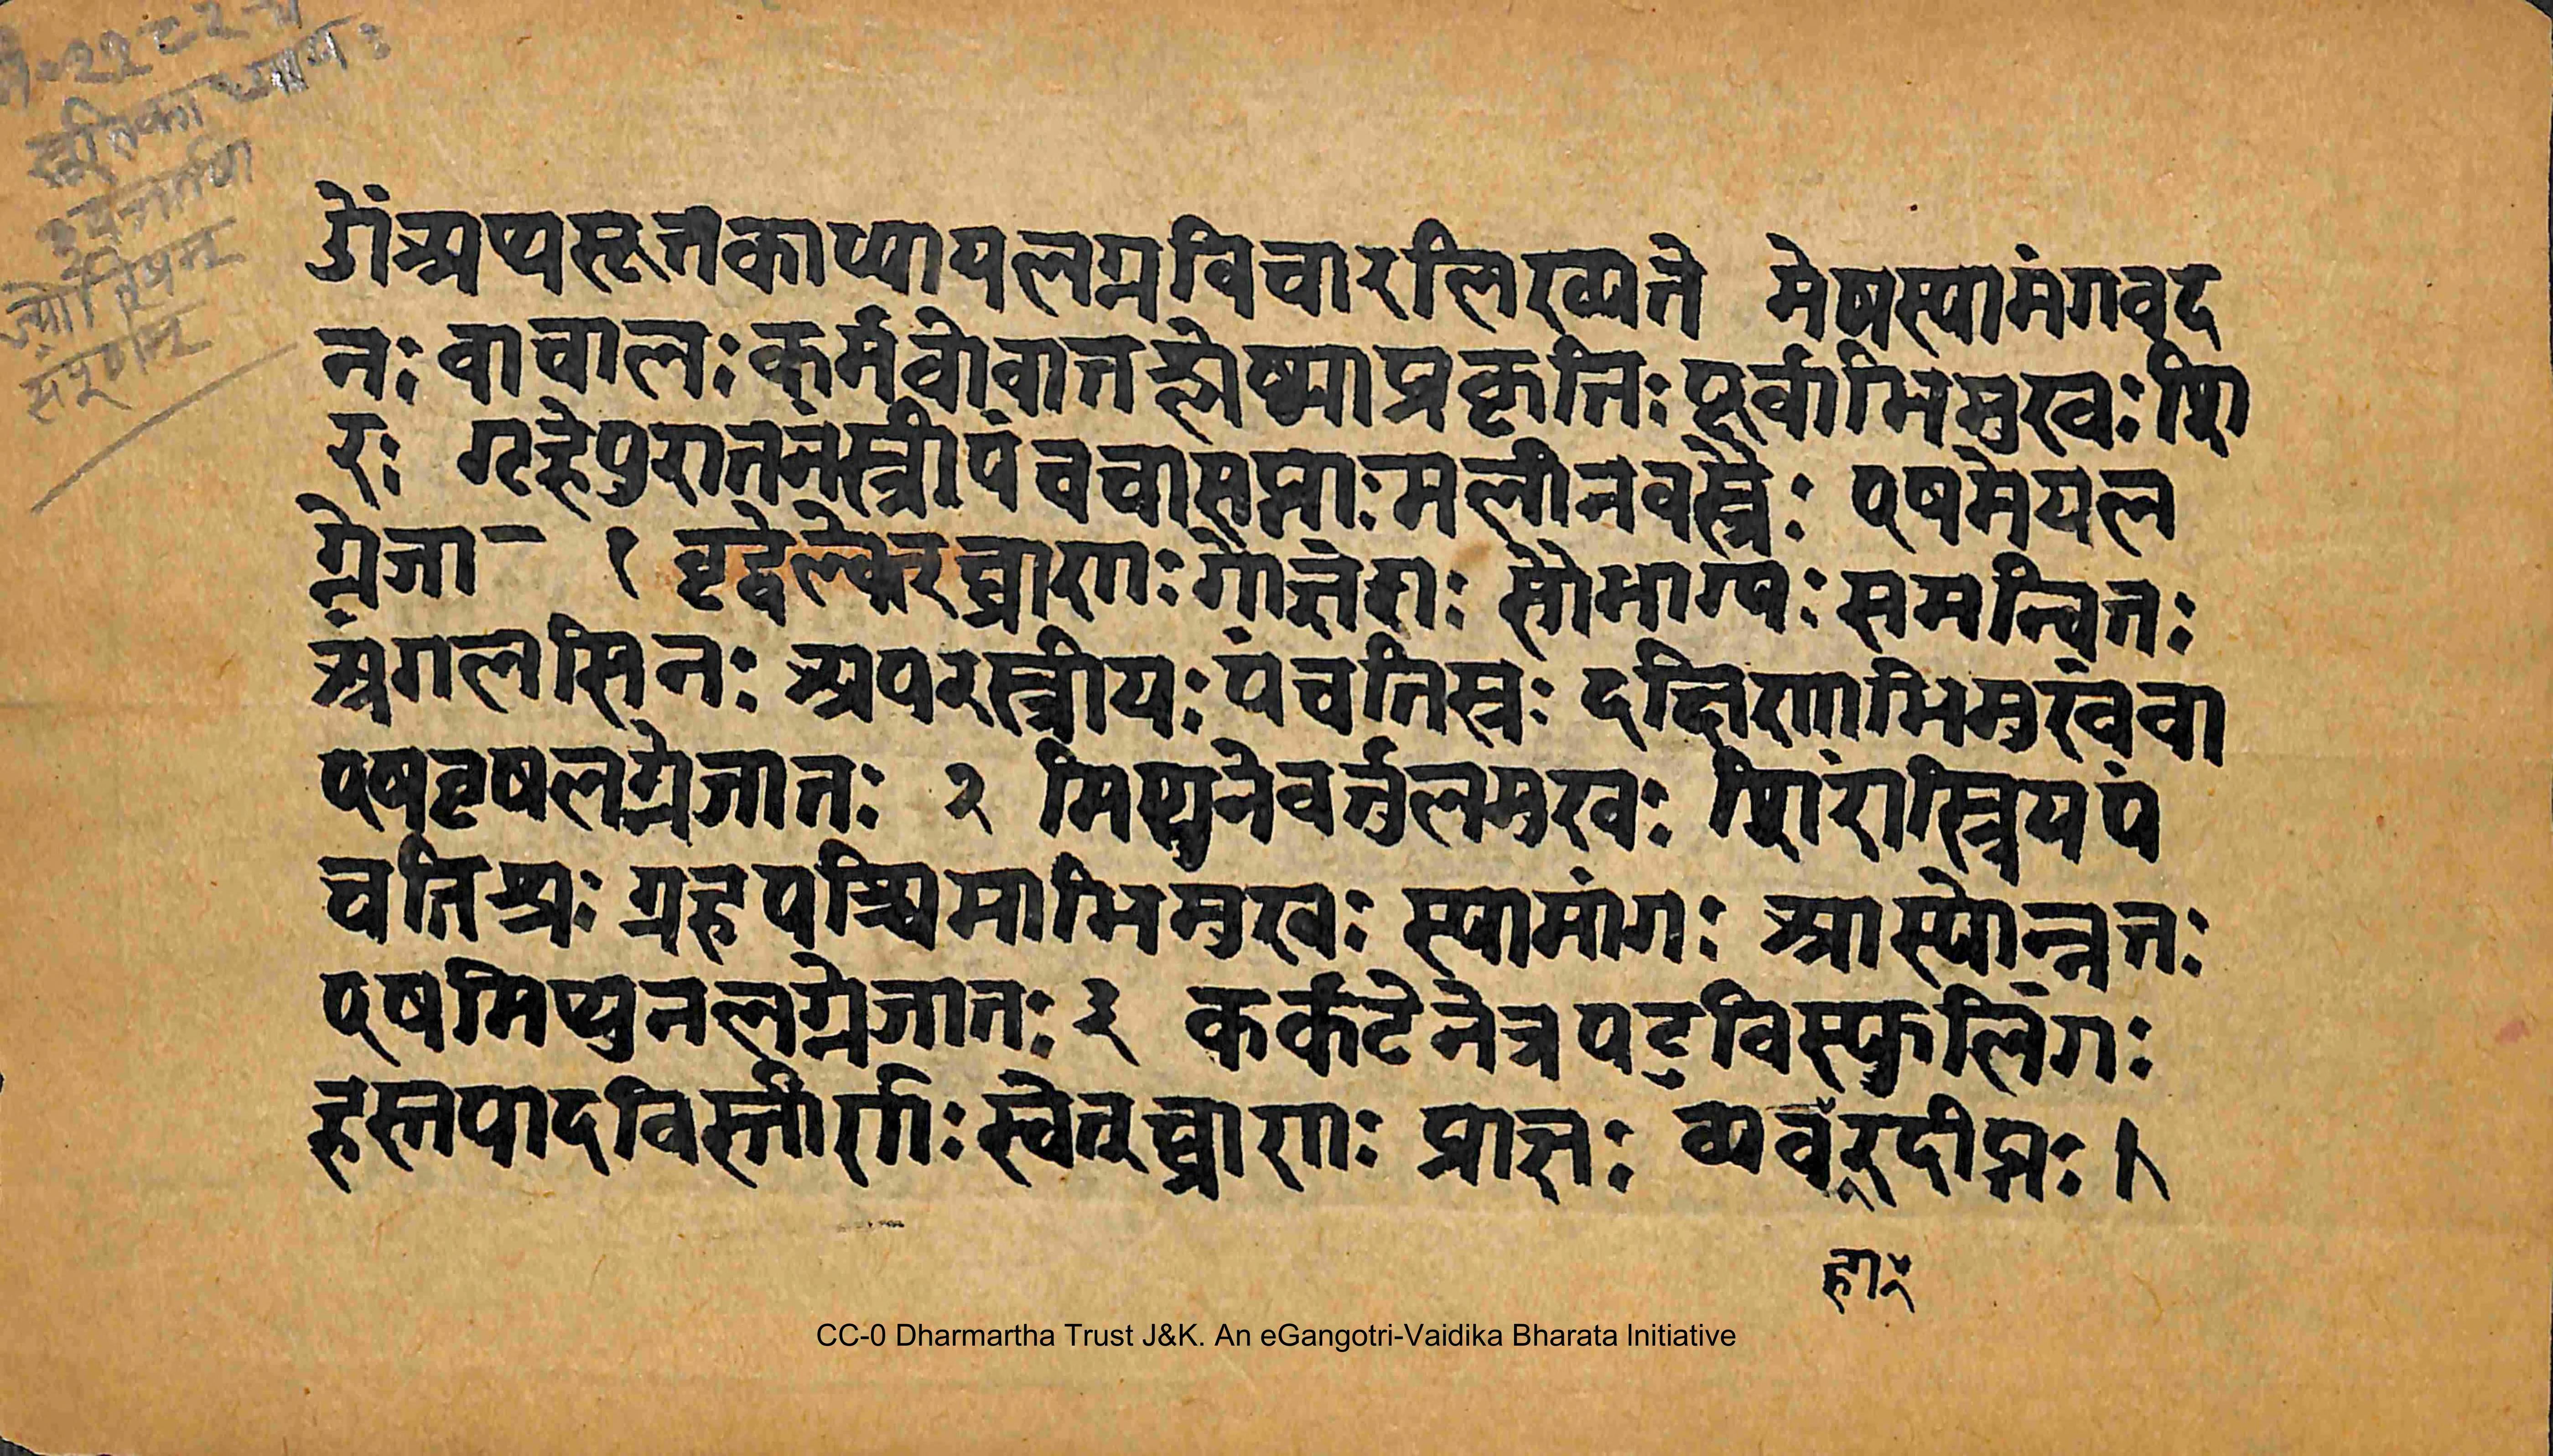 सूतिकाध्यायः
ज्योतिषम्
संपूर्णम्
ॐ अथ सूतकाध्यायलग्नविचारलिख्यते मेषस्यामंगवद
नः वाचालः कर्मवोवातश्लेष्माप्रकृतिः पूर्वाभिमुखः शि
रः गृहेपुरातनंस्त्रीपंचवासप्ताः मलीनवस्त्रैः पषमेयल
ग्नेजा - १ वृद्देल्केरघ्राणः गौरांशः सौभाग्यः समन्वितः
अंगलसिनः अपरस्त्रीयः पंचतिस्रः दक्षिणाभिमुखंवा
पषवृषलग्नेजातः २ मिथुनेवर्त्तुलमुखः शिरांस्त्रियपं
चतिश्रः ग्रहपश्चिमाभिमुखः स्यामांगः आस्योन्नतः
पषमिथुनलग्नेजातः ३ कर्कटेनेत्रपटुविस्फुलिंगः
हस्तपादविस्तीर्णः स्वेतघ्राणः प्राज्ञः दीप्तः ।
हाः
CC-0 Dharmartha Trust J&K. An eGangotri-Vaidika Bharata Initiative